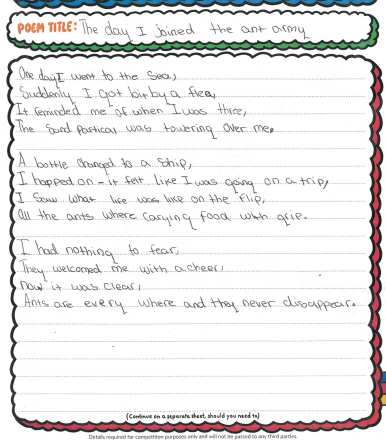 POEM TITLE: The day I joined the ant army
One day I went to the sea,
Suddenly I got bit by a flea,
It reminded me of when I was three,
The sand partical was towering over me.
A bottle changed to a ship,
I hopped on - it felt like I was going on a trip,
I saw what life was like on the flip,
all the ants where carying food with grip.
I had nothing to fear,
They welcomed me with a cheer,
now it was clear,
Ants are every where and they never dissappear.
(Continue on a separate sheet, should you need to)
Details required for competition purposes only and will not be passed to any third parties.